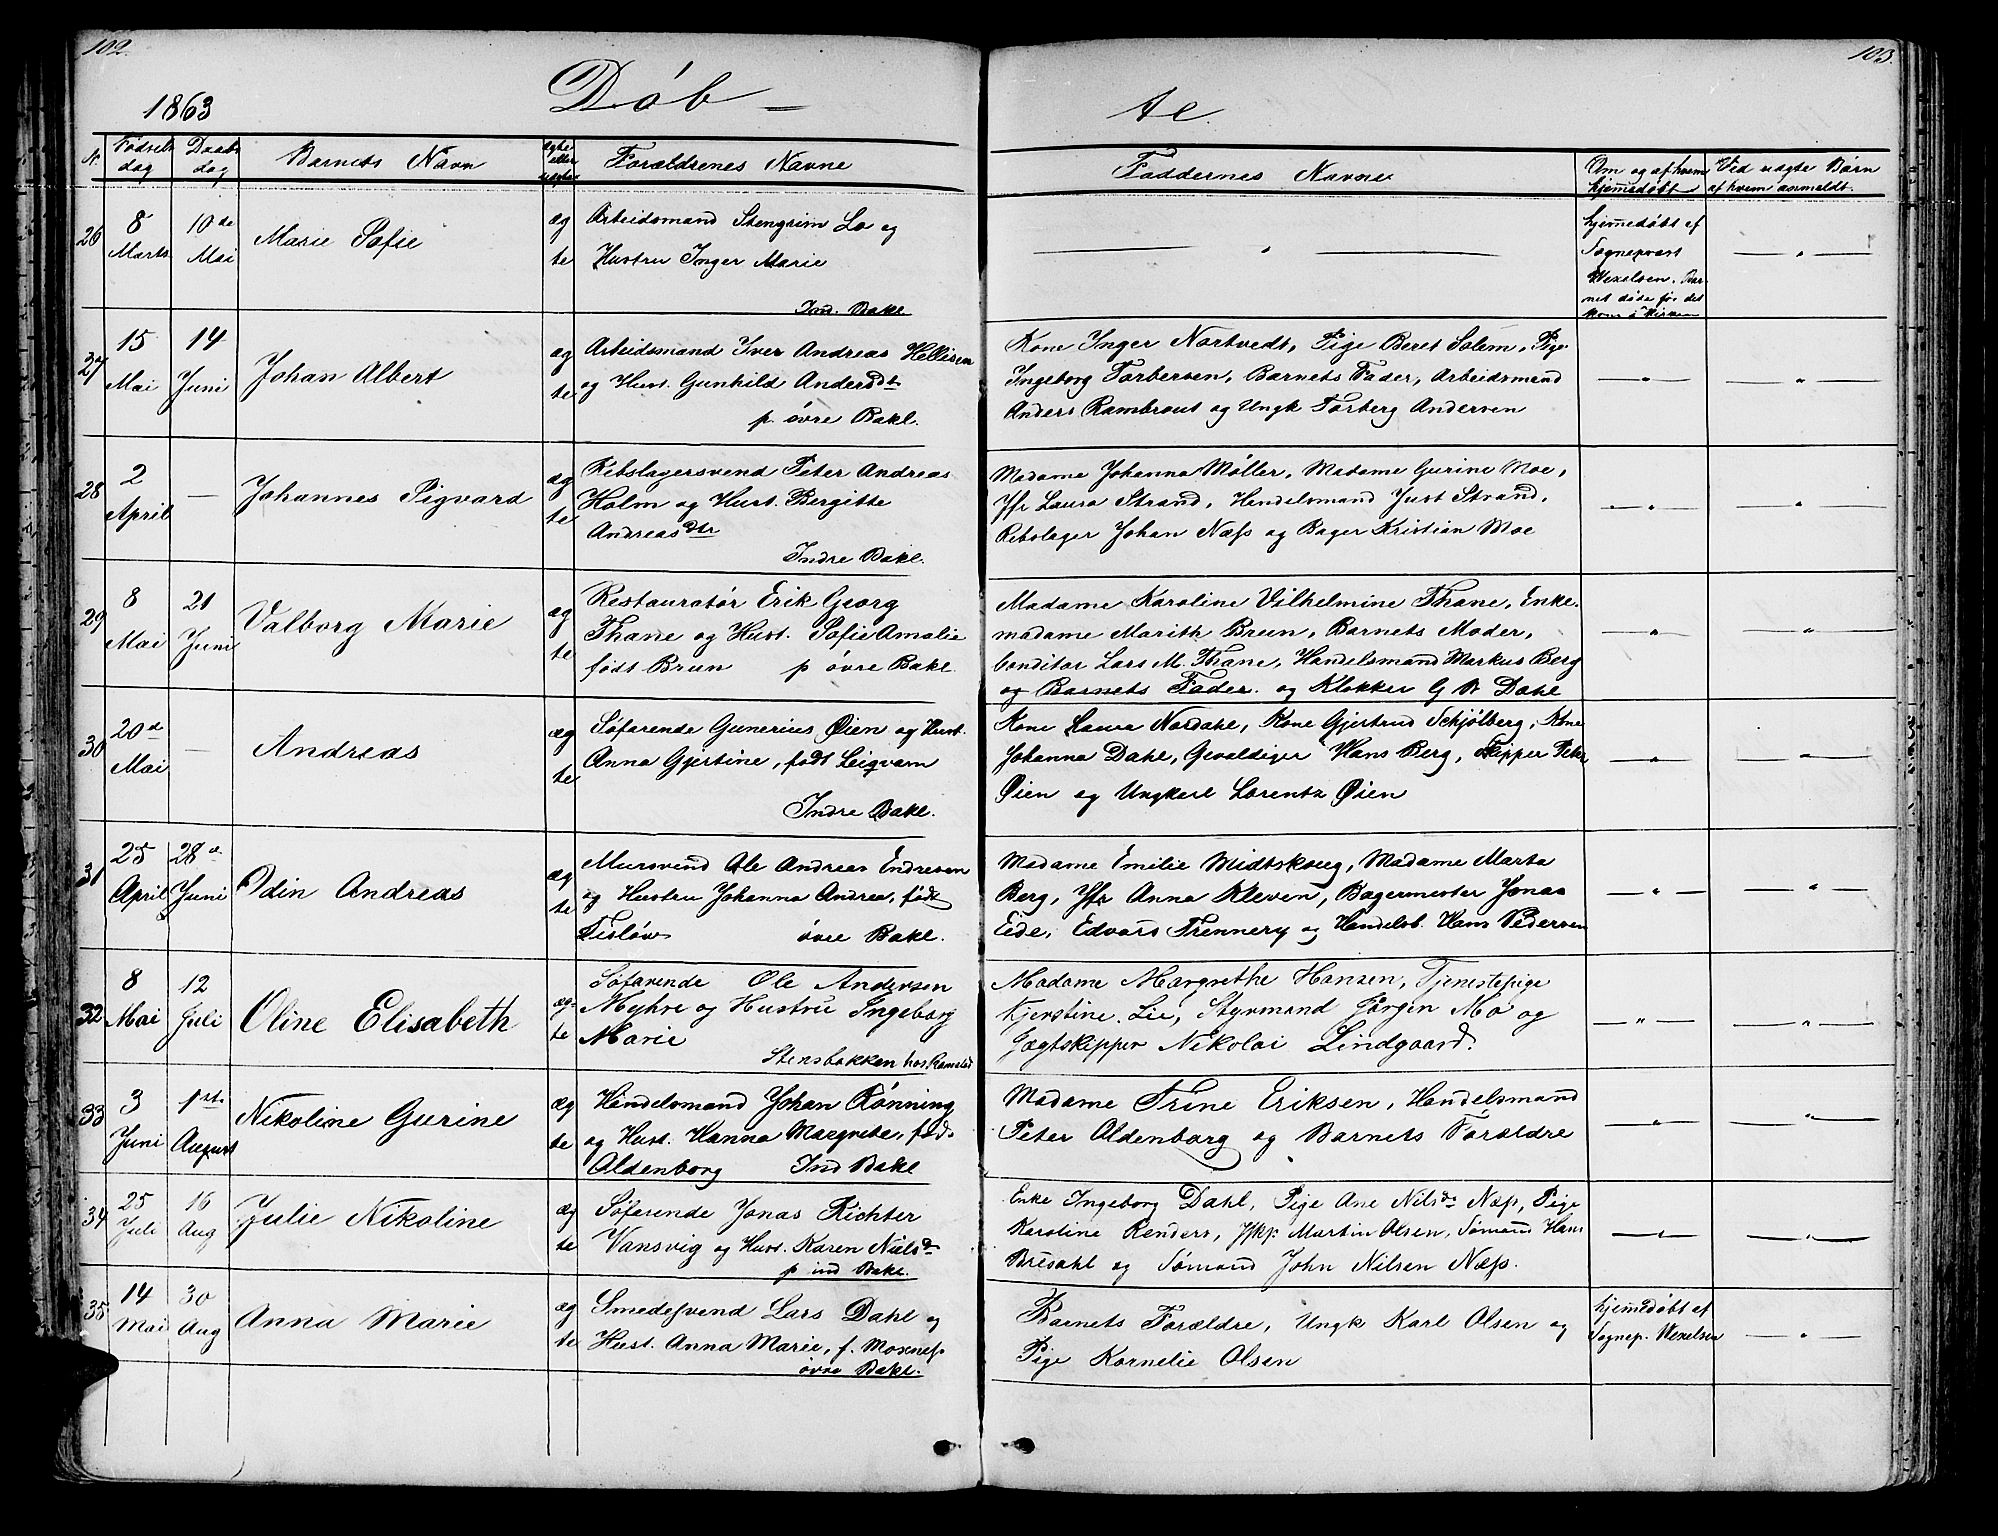 102.
103.
1863
Døb -
te
N.
Fødsels dag
Daabs dag
Barnets Navn
ægte eller uægte
Forældrenes Navne
Faddernes Navne
Om og af hvem hjemmedøbt
Ved uægte Børn af hvem anmeldt.
26
8 Marts
10de Mai
Marie Sofie
ægte
Arbeidsmand Stengrim Lo og
Hustru Inger Marie
Ind. Bakl.
— " —
hjemmedøbt af
Sognepræst
Wexelsen. Bar-
net døde før det
kom i Kirken
— " —
27
15 Mai
14 Juni
Johan Albert
ægte
Arbeidsmand Iver Andreas Hellisen
og Hust. Gunhild Andersdt
p. øvre Bakl.
Kone Inger Nortvedt, Pige Beret Solem, Pige
Ingeborg Torbersen, Barnets Fader, Arbeidsmand
Anders Rambraut og Ungk Torberg Andersen
— " —
— " —
28
2 April
—
Johannes Sigvard
ægte
Rebslagersvend Peter Andreas
Holm og Hust. Bergitte
Andreasdtr
Indre Bakl.
Madame Johanna Møller, Madame Gurine Moe,
Jfr Laura Strand, Handelsmand Just Strand,
Rebslager Johan Næss og Bager Kristian Moe
— " —
— " —
29
8 Mai
21 Juni
Valborg Marie
ægte
Restauratør Erik Georg
Thane og Hust. Sofie Amalie
født Brun p øvre Bakl.
Madame Karoline Vilhelmine Thane, Enke-
madame Marith Brun, Barnets Moder,
Conditor Lars M. Thane, Handelsmand Markus Berg
og Barnets Fader. og Klokker G B Dahl
— " —
— " —
30
20de Mai
—
Andreas
ægte
Søfarende Gunerius Øien og Hust.
Anna Gjertine, født Leiqvam
Indre Bakl.
Kone Laura Nordahl, Kone Gjertrud Schjølberg, Kone
Johanna Dahl, Gevaldiger Hans Berg, Skipper Peter
Øien og Ungkarl Lorentz Øien
— " —
— " —
31
25 April
28de Juni
Odin Andreas
ægte
Mursvend Ole Andreas Endresen
og Hustru Johanna Andrea, født
Tesløv øvre Bakl.
Madame Emilie Midtskoug, Madame Marta
Berg, Jfr Anna Kleven, Bagermester Jonas
Eide, Edvard Trennery og Handelsb. Hans Pedersen
— " —
— " —
32
8 Mai
12 Juli
Oline Elisabeth
ægte
Søfarende Ole Andersen
Myhre og Hustru Ingeborg
Marie
Stensbakken hos Ramstad
Madame Margrethe Hansen, Tjenestepige
Kjerstine Lie, Styrmand Jørgen Mo og
Jægtskipper Nikolai Lindgaard.
— " —
— " —
33
3 Juni
1ste August
Nikoline Gurine
ægte
Handelsmand Johan Rønning
og Hust. Hanna Margreta, fød.
Aldenborg Ind Bakl
Madame Trine Eriksen, Handelsmand
Peter Aldenborg og Barnets Forældre
— " —
— " —
34
25 Juli
16 Aug
Julie Nikoline
ægte
Søfarende Jonas Richter
Vansvig og Hust. Karen Nielsdr
p ind Bakl.
Enke Ingeborg Dahl, Pige Ane Nilsdr Næss, Pige
Karoline Renders, Martin Olsen, Sømand Hans
Bredahl og Sømand John Nilsen Næss.
— " —
— " —
35
14 Mai
30 Aug
Anna Marie
ægte
Smedesvend Lars Dahl og
Hust. Anna Marie, f. Moxness
øvre Bakl.
Barnets Forældre, Ungk Karl Olsen og
Pige Kornelie Olsen
hjemmedøbt af
Sognep. Wexelsen
— " —